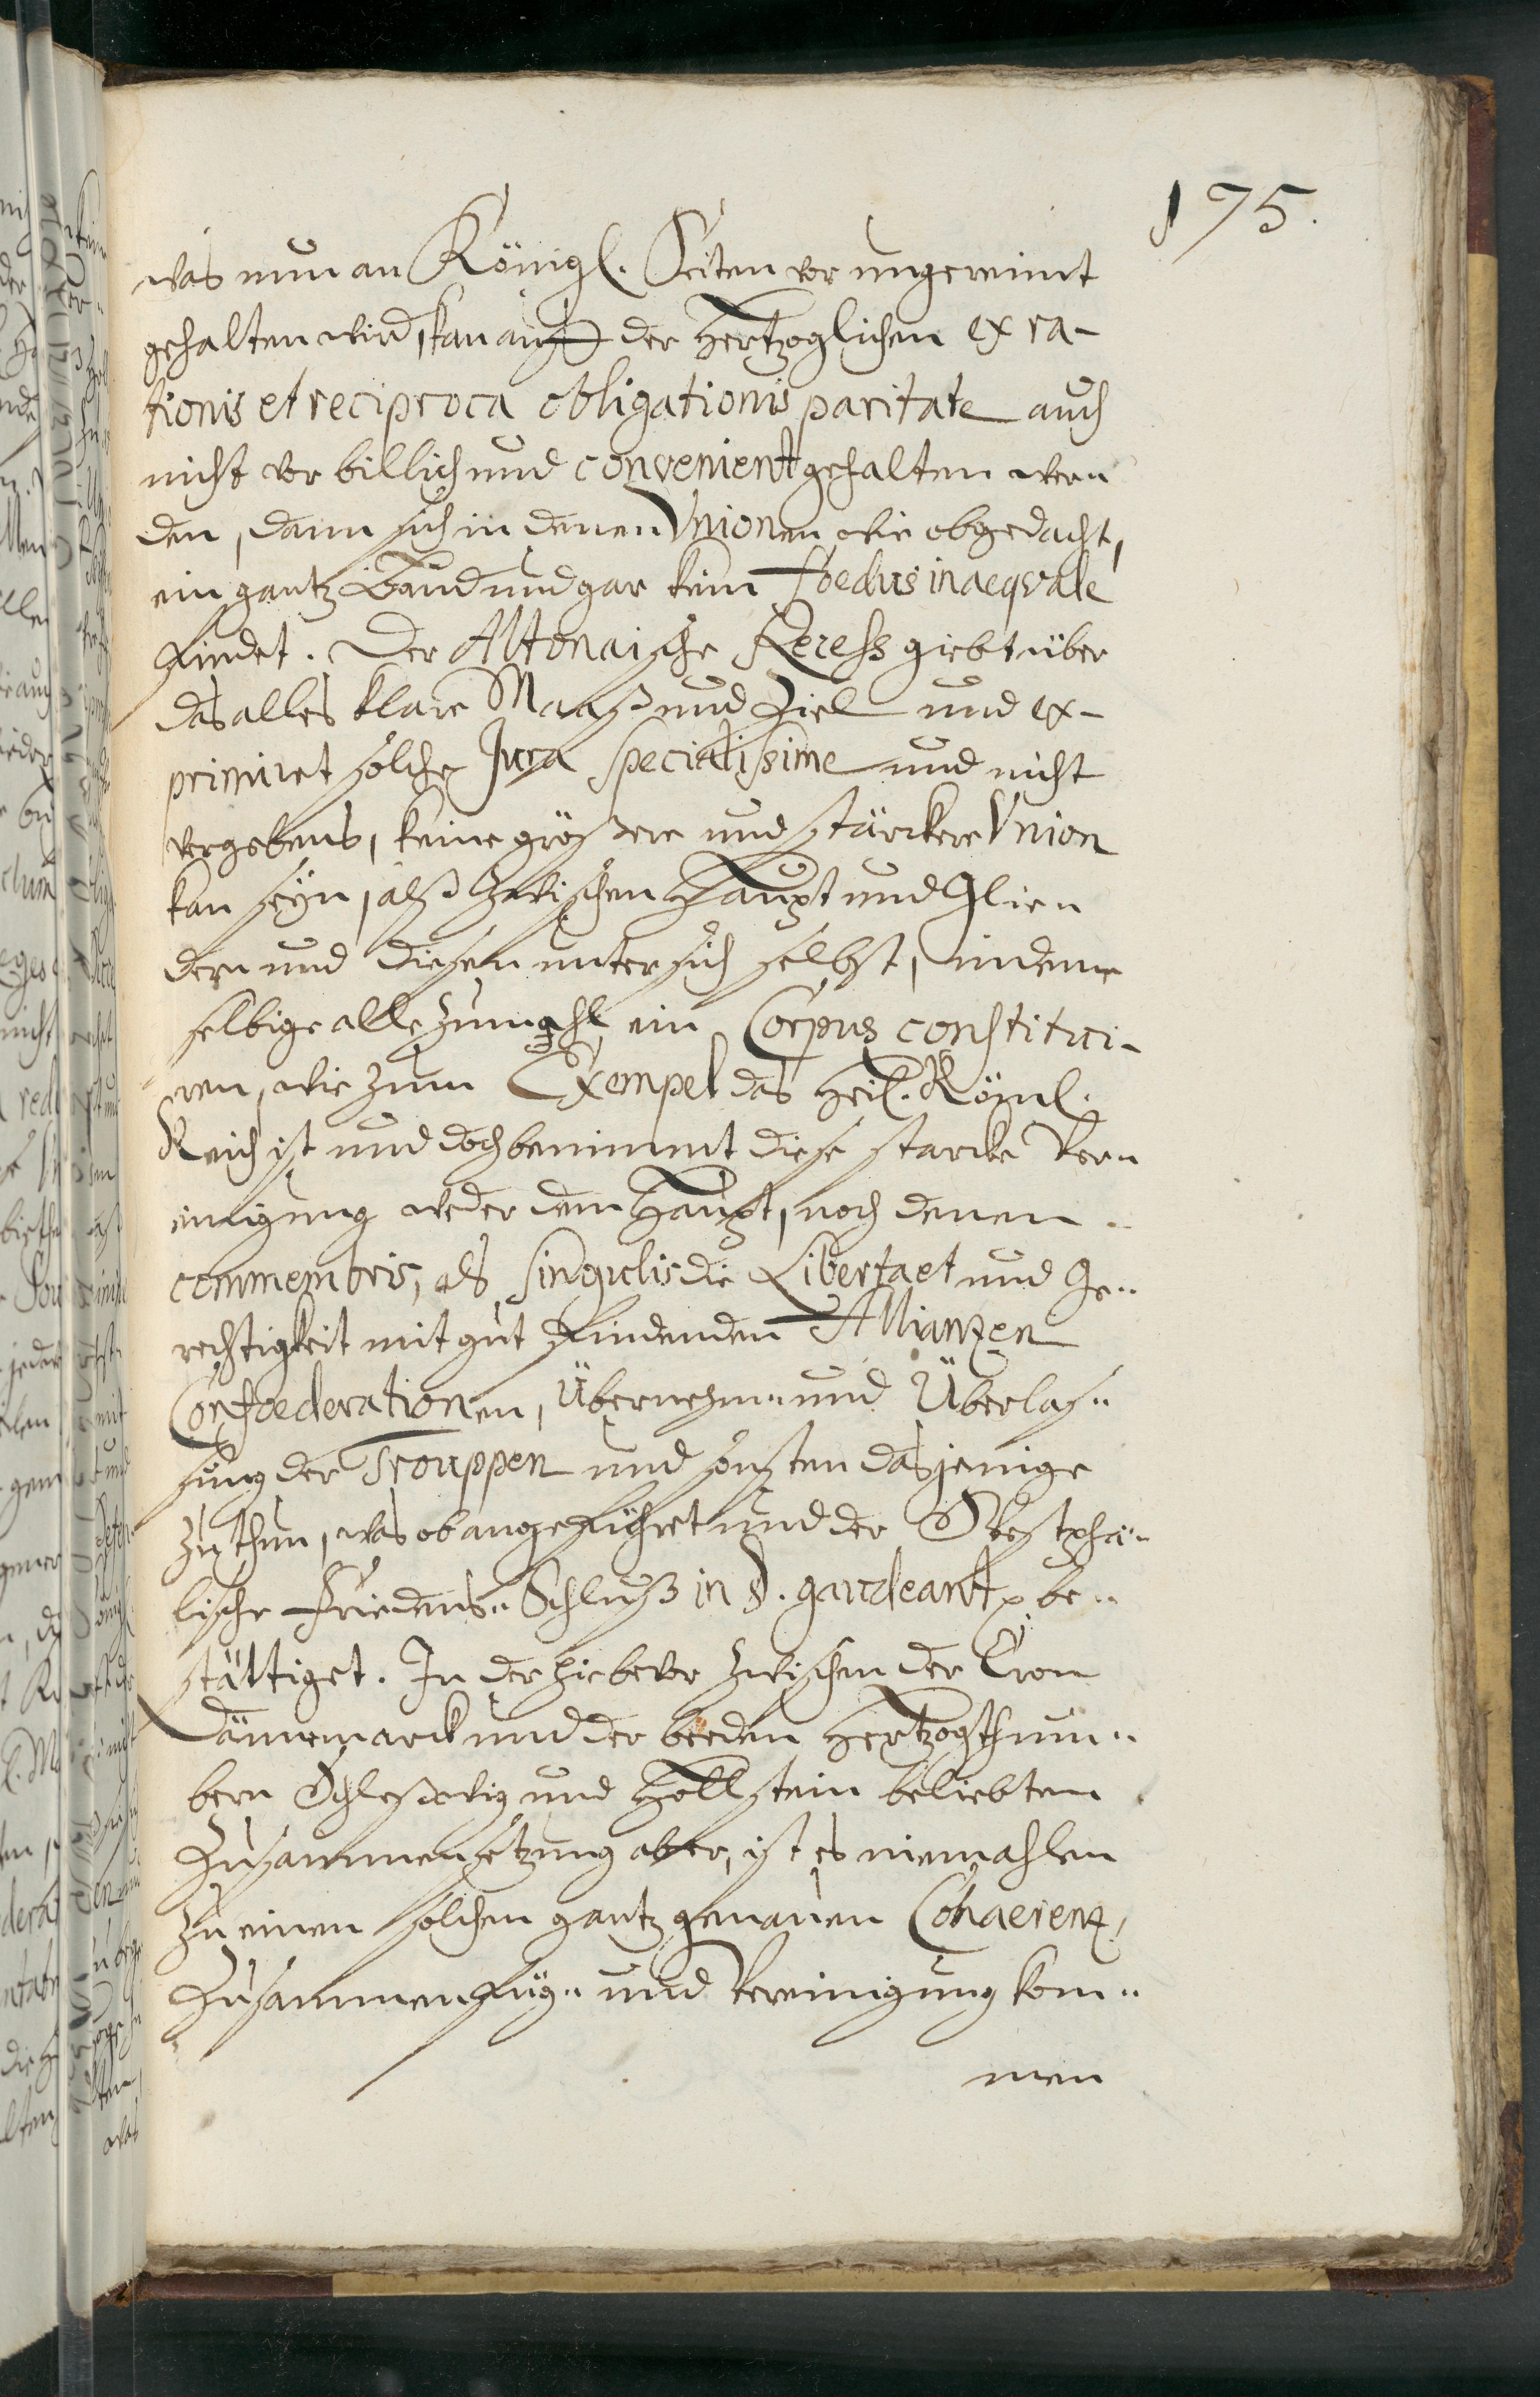 175.
was nun an Königl. Seiten vor ungereimt
gehalten wird, kan auf der Hertzoglichen ex ra-
tionis et reciproca obligationis paritate auch
nicht vor billich und convenient gehalten wer-
den, dann sich in denen Unionen, wie obgedacht,
ein gantz Band und gar kein foedus inaequale
findet. Der Altonaische Recess giebt über
das alles klare Maaß und Ziel und ex-
primiret solche Jura specialissime und nicht
vergebens, keine größere und stärckere Union
kan seyn, alß zwischen Haupt und Glie-
dern und diesen unter sich selbst, indeme
selbige allezumahl ein Corpus constitui-
ren, wie zum Exempel das Heil. Röml.
Reich ist und doch benimmt diese starcke Ver-
einigung weder dem Haupt, noch denen
commembris, als singulis die Libertaet und Ge-
rechtigkeit mit gut findenden Allianzen
Confoederationen, Übernehm- und Überlas-
sung der Trouppen und sonsten dasjenige
zu thun, was ob angeführet und der Westphä-
lische Friedens-Schluß in §. gaudeant p be-
stättiget. In der hiebevor zwischen der Cron
Dännemarck und der beeden Hertzogthum-
bern Schleßwig und Hollstein beliebten
Zusammensetzung aber, ist es niemahlen
zu einen solchen gantz genauen Cohaerenz,
Zusammenfüg- und Vereinigung kom-
men